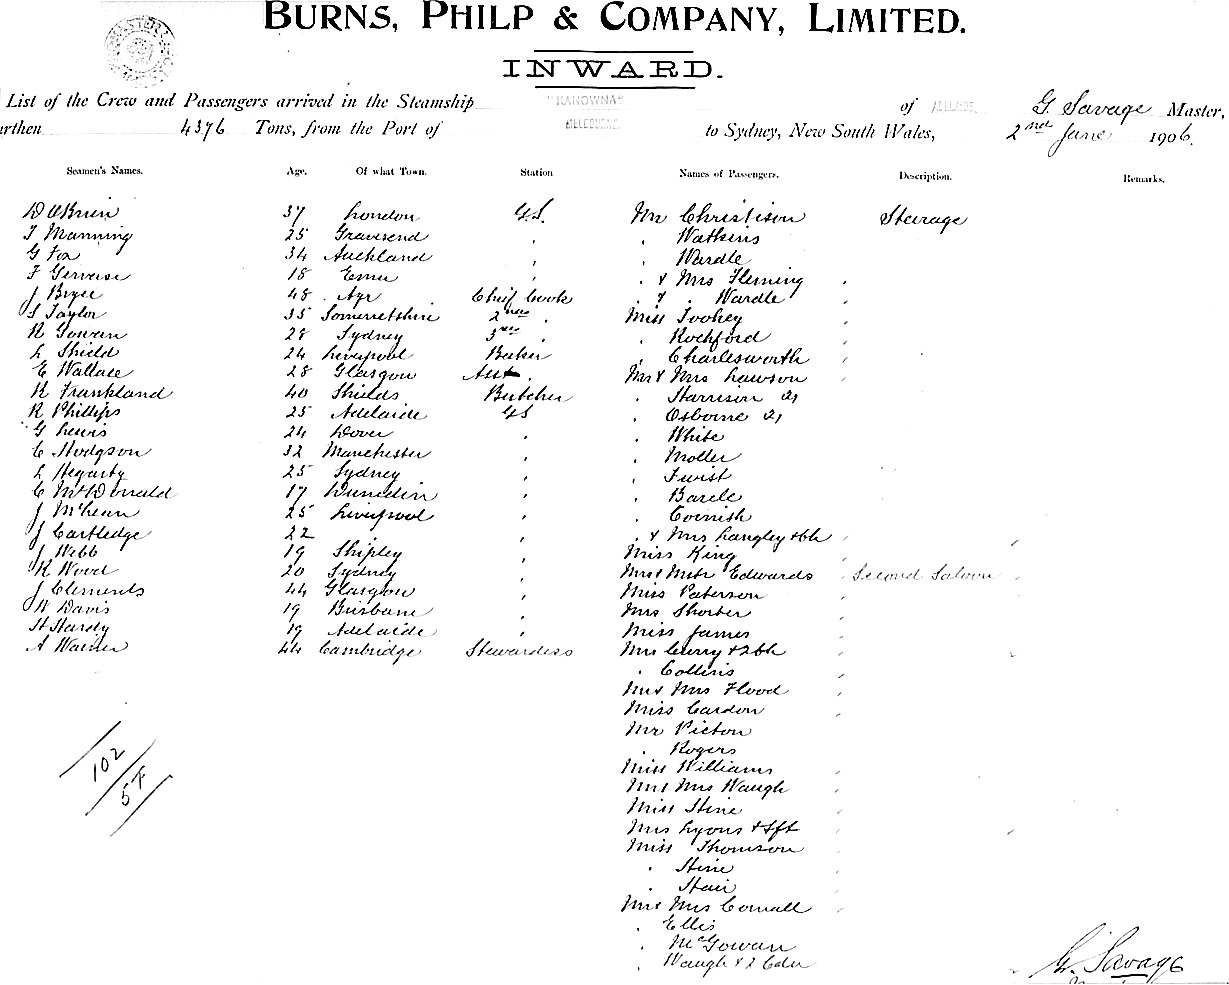 BURNS, PHILP & COMPANY, LIMITED.
INWARD.
List of the Crew and Passengers arrived in the Steamship "KANOWNA" of ADELAIDE, G. Savage Master,
urthen 4376 Tons, from the Port of MELBOURNE. to Sydney, New South Wales, 2nd June 1906.
Seamen's Names. Age. Of what Town. Station Names of Passengers. Description. Remarks.
D OBrien 37 London G.S. Mr Christison Steerage
T Manning 25 Gravesend " " Watkins
G Fox 34 Auckland " " Wardle
F Gervase 18 " " & Mrs Fleming "
J Bryce 48 Ayr Chief Cook " & " Wardle "
S Taylor 35 Somersetshire 2nd " Miss Toohey "
R Gowan 28 Sydney 3rd " " Rochford "
L Shield 24 Liverpool Baker " Charlesworth "
E Wallace 28 Glasgow Asst " Mr & Mrs Lawson "
R Frankland 40 Shields Butcher " Harrison
R Phillips 25 Adelaide GS " Osborne
G Lewis 24 Dover " " White
C Hodgson 32 Manchester " " Moller
L Hegarty 25 Sydney " " Twist
C McDonald 17 Dunedin " "
J McLean 25 Liverpool " " Cornish
J Cartledge 22 " " & Mrs Langley & ch "
J Webb 19 Shipley " Miss King "
R Wood 20 Sydney " Mrs & Mstr Edwards Second Saloon
J Clements 44 Glasgow " Miss Paterson "
W Davis 19 Brisbane " Mrs Shorter "
H Hardy 19 Adelaide " Miss James "
A Warner 44 Cambridge Stewardess Mrs Curry & 2 ch "
" Collins "
Mr & Mrs Flood "
Miss Cardon "
Mr Picton
" Rogers
Miss Williams "
Mr & Mrs Waugh "
Miss Hine "
Mrs Lyons & Sft "
Miss Thomson "
" Hine "
" Hair "
Mr & Mrs Cornall "
" Ellis
" McGowan
" Waugh & 2
102
57
G. Savage